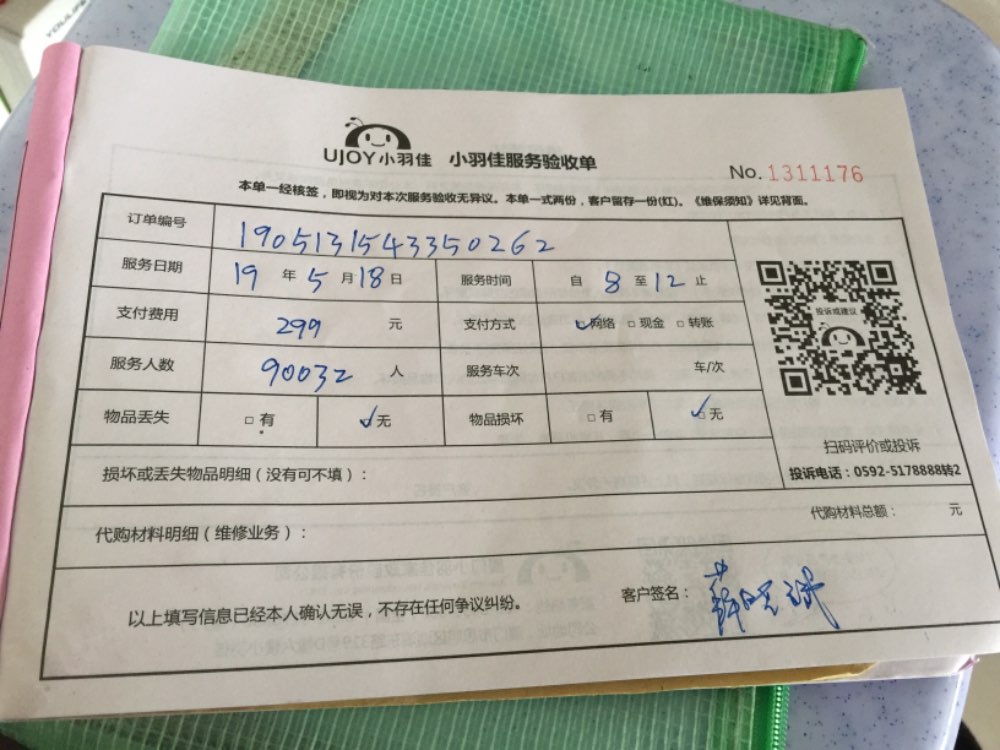 UJOY小羽佳 小羽佳服务验收单
No.1311176
本单一经核签，即视为对本次服务验收无异议。本单一式两份，客户留存一份(红)。《维保须知》详见背面。
订单编号 1905131543350262
服务日期 19 年 5 月 18 日 服务时间 自 8 至 12 止
支付费用 299 元 支付方式 ☑网络 □现金 □转账
服务人数 90032 人 服务车次 车/次
物品丢失 □有 ☑无 物品损坏 □有 ☑无
投诉或建议
扫码评价或投诉
投诉电话：0592-5178888转2
损坏或丢失物品明细（没有可不填）：
代购材料明细（维修业务）： 代购材料总额： 元
以上填写信息已经本人确认无误，不存在任何争议纠纷。 客户签名：